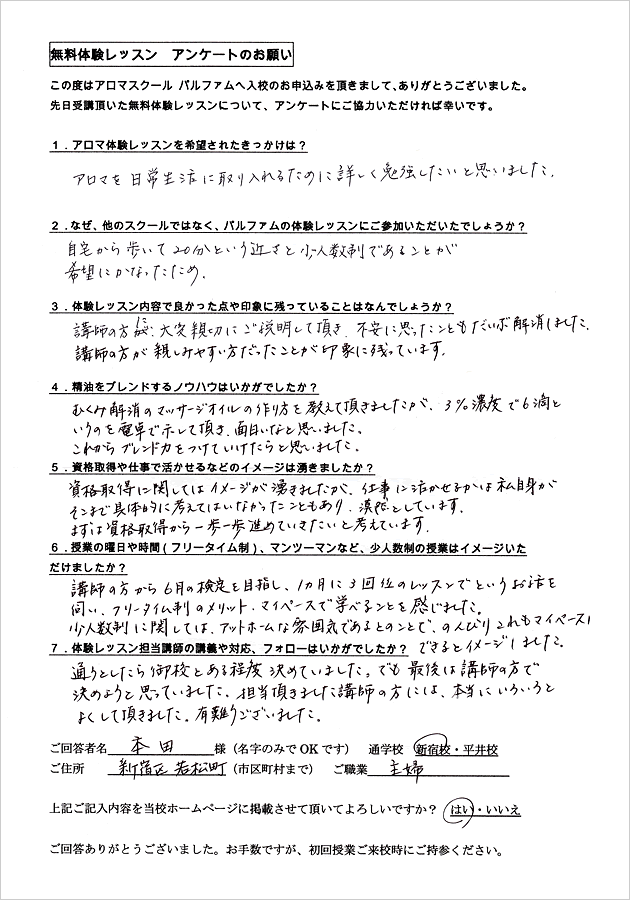 無料体験レッスン　アンケートのお願い
この度はアロマスクール パルファムへ入校のお申込みを頂きまして、ありがとうございました。
先日受講頂いた無料体験レッスンについて、アンケートにご協力いただければ幸いです。
１．アロマ体験レッスンを希望されたきっかけは？
アロマを日常生活に取り入れるために詳しく勉強したいと思いました。
２．なぜ、他のスクールではなく、パルファムの体験レッスンにご参加いただいたでしょうか？
自宅から歩いて20分という近さと少人数制であることが
希望にかなったため。
３．体験レッスン内容で良かった点や印象に残っていることはなんでしょうか？
講師の方に大変親切にご説明して頂き、不安に思ったこともだいぶ解消しました。
講師の方が親しみやすい方だったことが印象に残っています。
４．精油をブレンドするノウハウはいかがでしたか？
むくみ解消のマッサージオイルの作り方を教えて頂きましたが、3%濃度で6滴と
いうのを電卓で示して頂き、面白いなと思いました。
これからブレンド力をつけていけたらと思いました。
５．資格取得や仕事で活かせるなどのイメージは湧きましたか？
資格取得に関してはイメージが湧きましたが、仕事に活かせるかは私自身が
そこまで具体的に考えてはいなかったこともあり、漠然としています。
まずは資格取得から一歩一歩進めていきたいと考えています。
６．授業の曜日や時間(フリータイム制)、マンツーマンなど、少人数制の授業はイメージいた
だけましたか？
講師の方から6月の検定を目指し、1カ月に3回位のレッスンでというお話を
伺い、フリータイム制のメリット、マイペースで学べることを感じました。
少人数制に関しては、アットホームな雰囲気であるとのことで、のんびりこれもマイペースに
できるとイメージしました。
７．体験レッスン担当講師の講義や対応、フォローはいかがでしたか？
通うとしたら御校とある程度決めていました。でも最後は講師の方で
決めようと思っていました。担当頂きました講師の方には、本当にいろいろと
よくして頂きました。有難うございました。
ご回答者名　本田　様（名字のみでOKです）　通学校　新宿校・平井校
ご住所　新宿区若松町（市区町村まで）　ご職業　主婦
上記ご記入内容を当校ホームページに掲載させて頂いてよろしいですか？　はい・いいえ
ご回答ありがとうございました。お手数ですが、初回授業ご来校時にご持参ください。